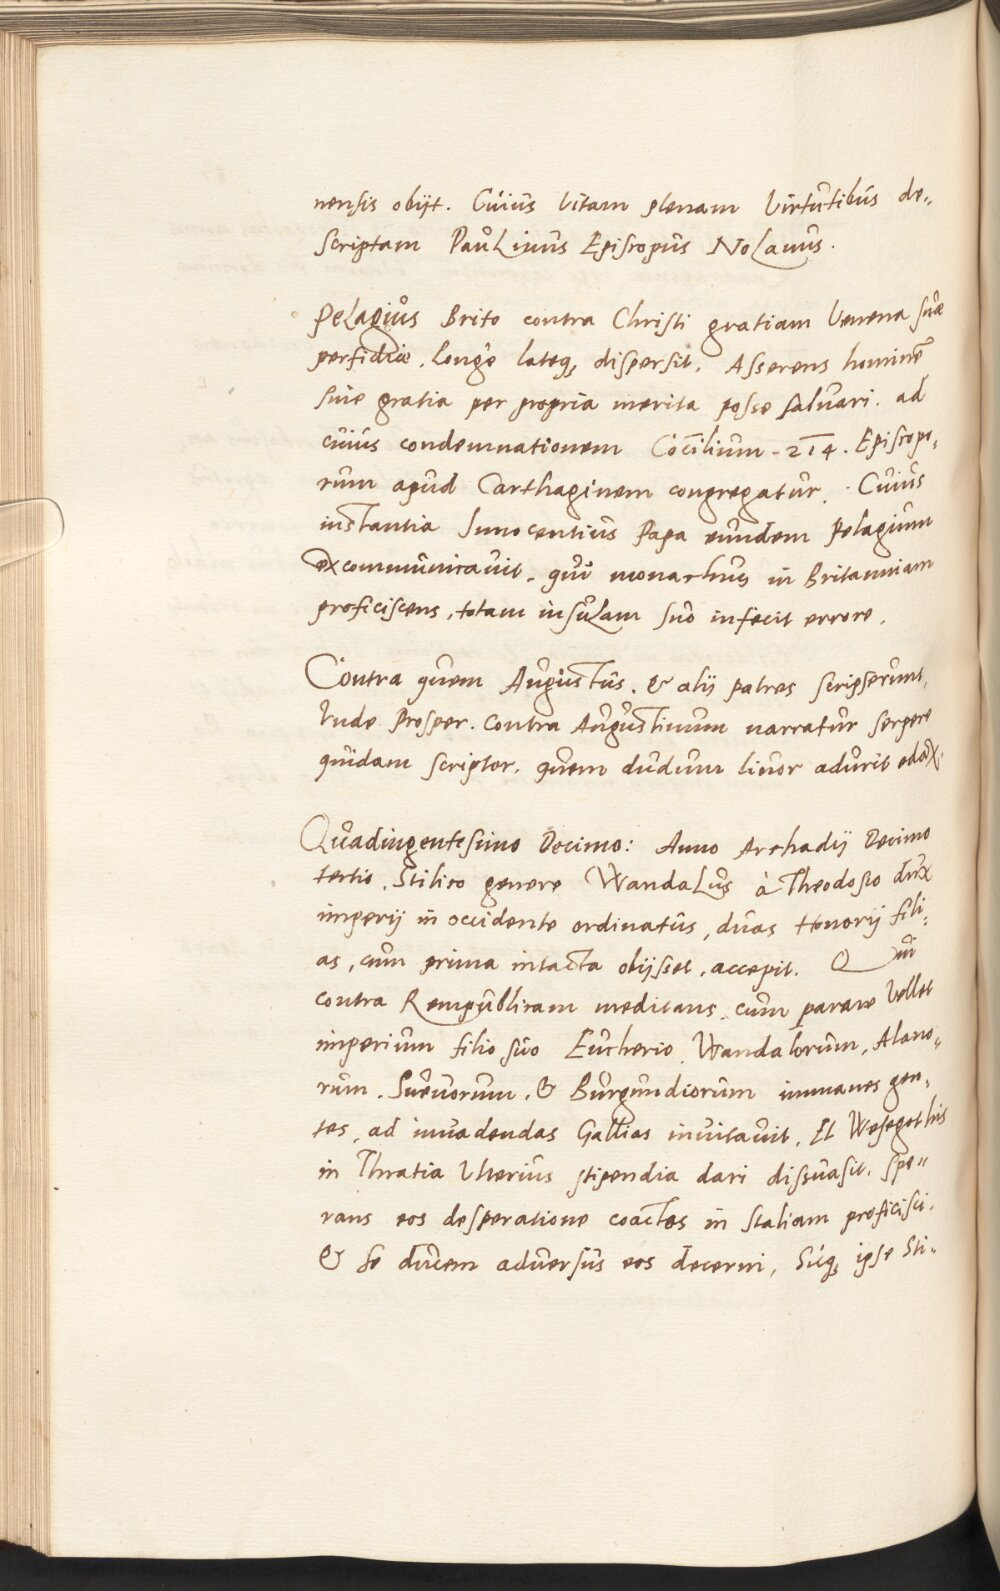 nensis obijt. Cuius Vitam plenam Virtutibus de„
scriptam Paulinus Episcopus Nolanus.
Pelagius Brito contra Christi gratiam Venena suae
perfidiae, longe lateq, dispersit. Asserens hominē
sine gratia per propria merita posse saluari. ad
cuius condemnationem Cōcilium - 214. Episcopo„
rum apud Carthaginem congregatur. Cuius
instantia Innocentius Papa eundem Pelagium
excommunicauit. qui monachus in Britanniam
proficiscens, totam insulam suo infecit errore.
Contra quem Augustus. & alij patres scripserunt,
Vnde Prosper. Contra Augustinum narratur serpere
quidam scriptor, quem dudum liuor adurit edax.
Quadingentesimo Decimo: Anno Archadij Decimo
tertio. Stilico genere Wandalus à Theodosio dux
imperij in occidente ordinatus, duas Honorij fili„
as, cum prima intacta obijsset, accepit. Qui
contra Rempublicam meditans, cum parare Vellet
imperium filio suo Eucherio, Wandalorum, Alano„
rum. Sueuorum. & Burgundiorum immanes gen„
tes, ad inuadendas Gallias inuitauit. Et Wesegothis
in Thratia Vlterius stipendia dari dissuasit. spe„
rans eos desperatione coactos in Italiam proficisci.
& se ducem aduersus eos decerni, Sicq, ipse Sti„